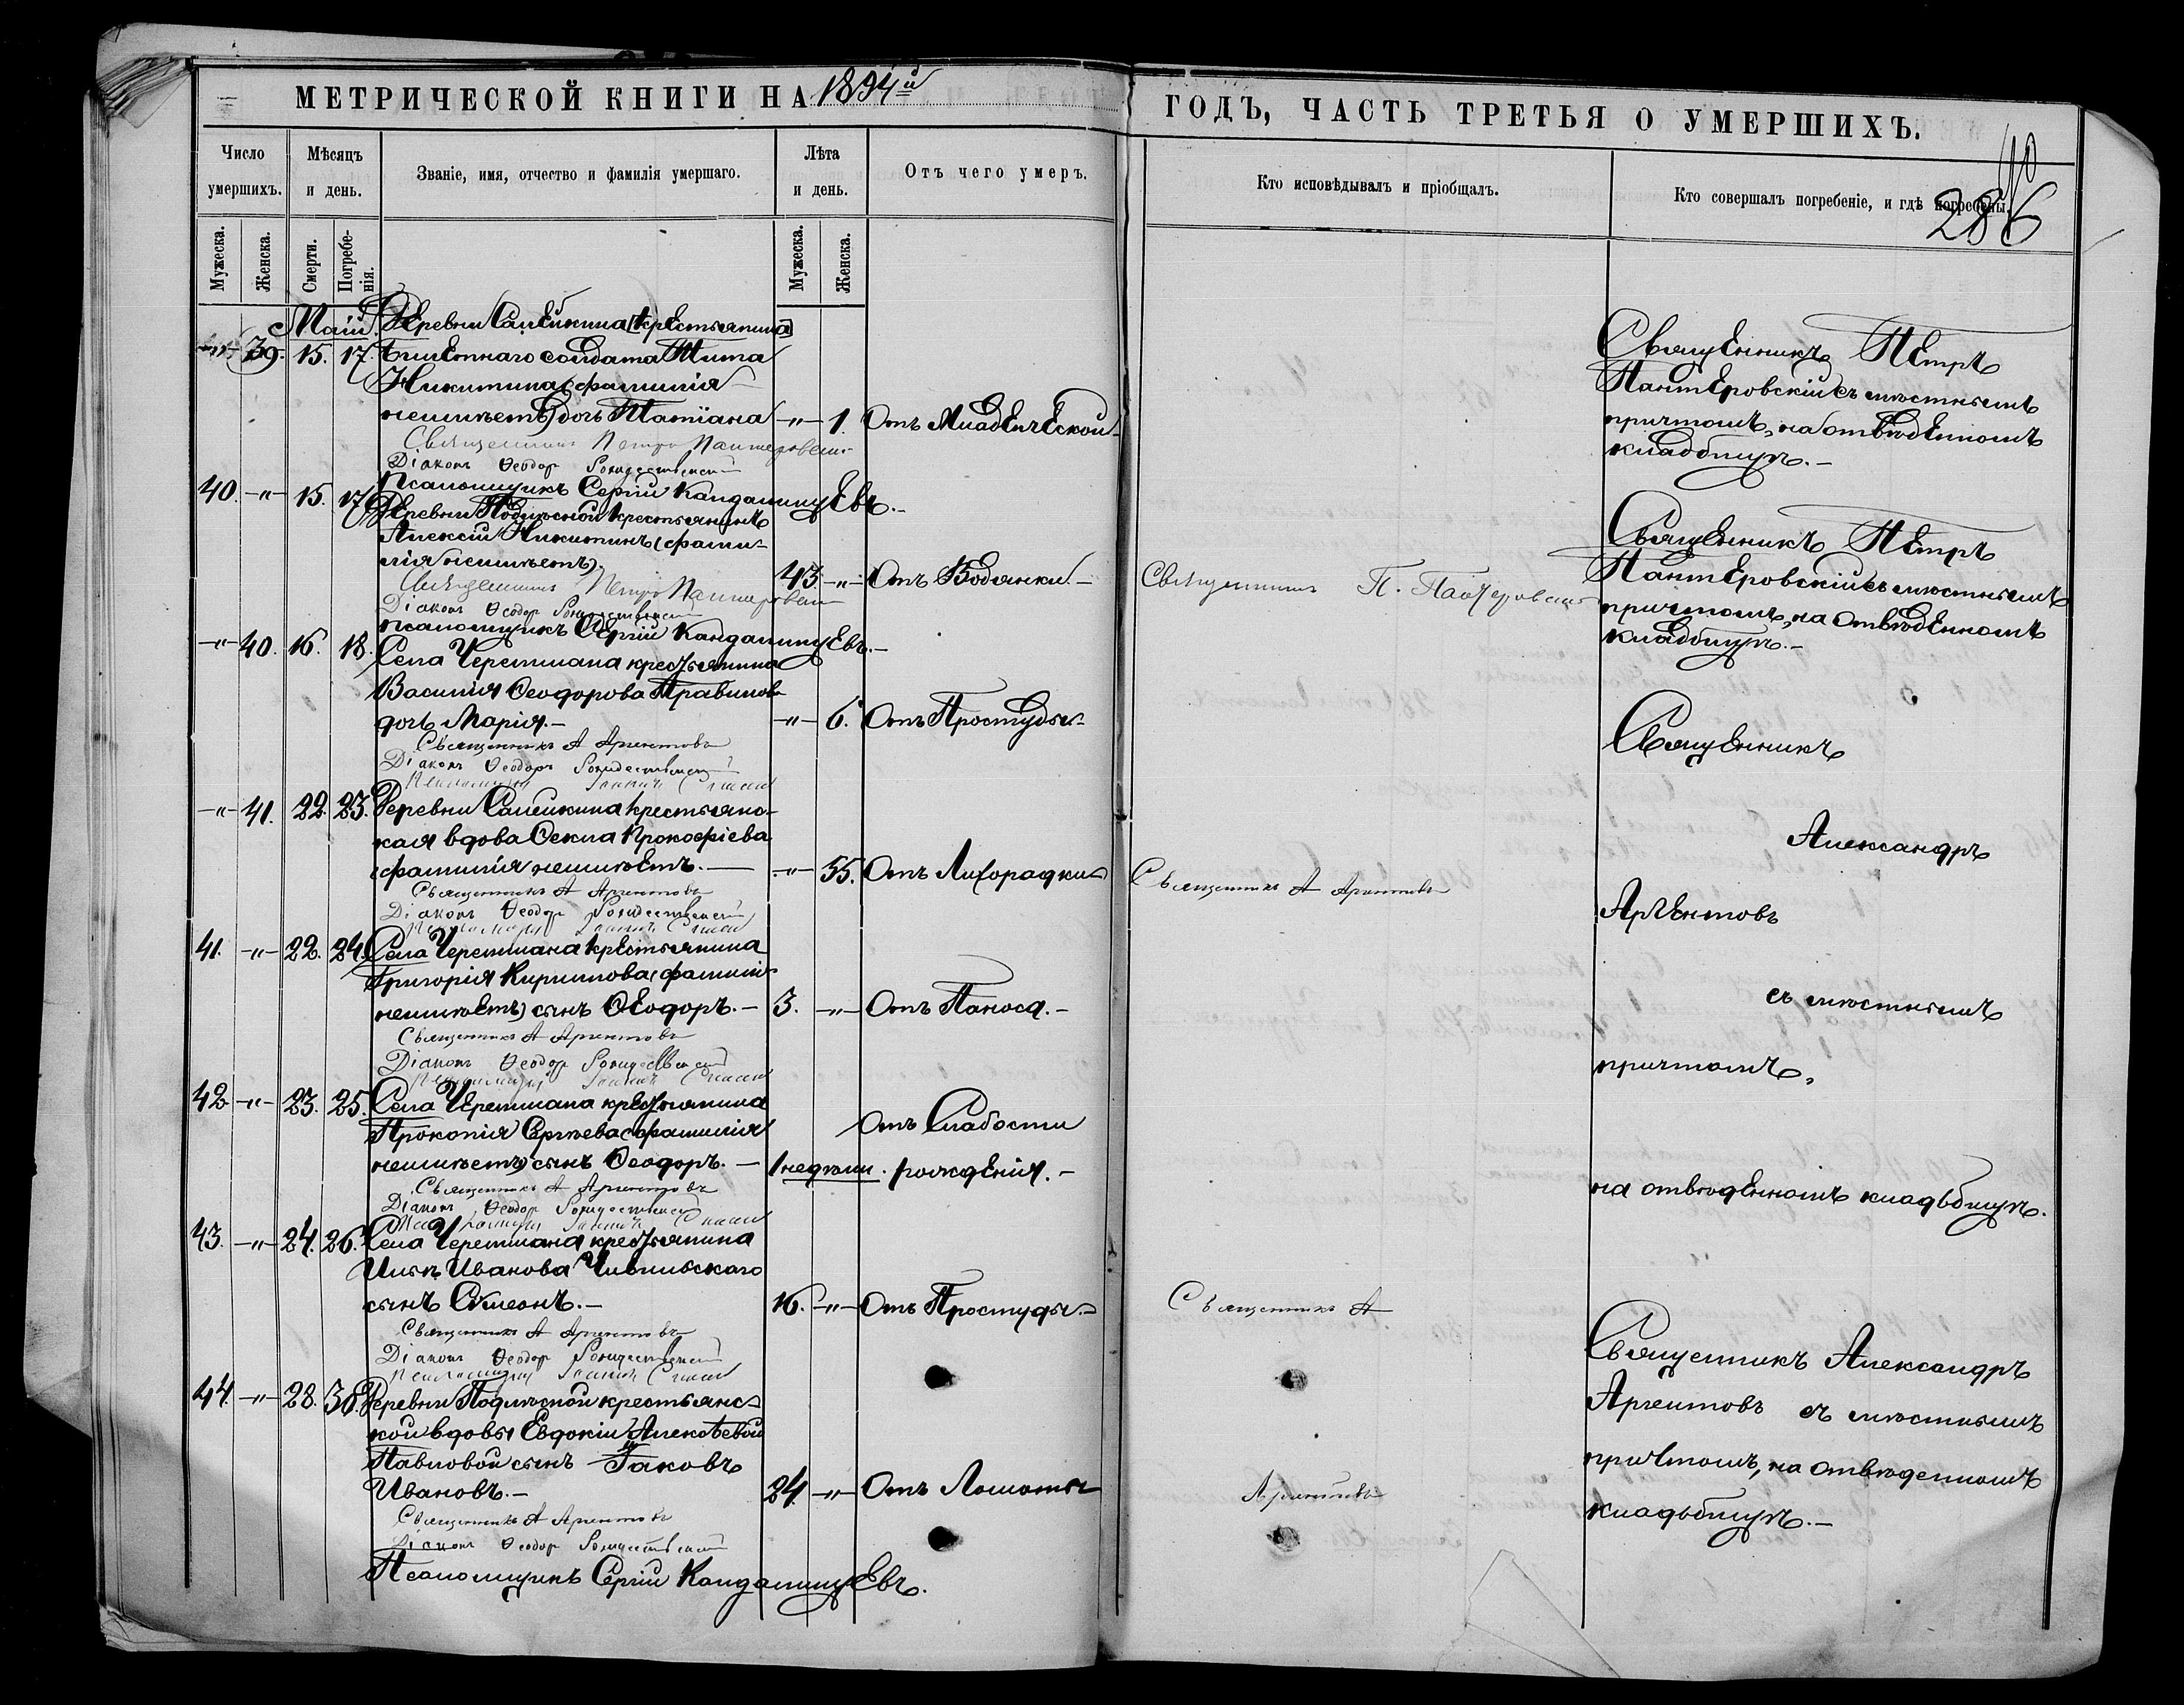 МЕТРИЧЕСКОЙ КНИГИ НА 1894й ГОДЪ, ЧАСТЬ ТРЕТЬЯ О УМЕРШИХЪ.
286
Число умершихъ.
Мѣсяцъ и день.
Званіе, имя, отчество и фамилія умершаго.
Лѣта и день.
Отъ чего умеръ.
Кто исповѣдывалъ и пріобщалъ.
Кто совершалъ погребеніе, и гдѣ погребены.
Мужеска.
Женска.
Смерти.
Погребенія.
Мужеска.
Женска.
Маій.
Деревни Салейкина [крестьянина]
39. 15. 17. билетнаго солдата Тита
Никитина (фамилія
неимѣетъ) дочь Татіана -"- 1. Отъ Младенческой
Священникъ Петръ Пантеровскій
Діаконъ Ѳеодоръ Рождественскій
Псаломщикъ Сергій Кандалинцевъ.-
Священникъ Петръ
Пантеровскій съ мѣстнымъ
причтомъ, на отведенномъ
кладбищѣ.-
40. -"- 15. 17. Деревни Подлѣсной крестьянинъ
Алексій Никитинъ (фами-
лія неимѣетъ) 43. -"- Отъ Водянки.-
Священникъ Петръ Пантеровскій
Діаконъ Ѳеодоръ Рождественскій
Псаломщикъ Сергій Кандалинцевъ.-
Священникъ П. Пантеровскій
Священникъ Петръ
Пантеровскій съ мѣстнымъ
причтомъ, на отведенномъ
кладбищѣ.-
-"- 40. 16. 18. Села Черемшана крестьянина
Василія Ѳеодорова Правилова
дочь Марія.- -"- 6. Отъ Простуды.-
Священникъ А Аргентовъ
Діаконъ Ѳеодоръ Рождественскій
Псаломщикъ
-"- 41. 22. 23. Деревни Салейкина крестьянс-
кая вдова Ѳекла Прокофіева
(фамилія неимѣетъ.- -"- 55. Отъ Лихорадки
Священникъ А Аргентовъ
Діаконъ Ѳеодоръ Рождественскій
Псаломщикъ
Священникъ А Аргентовъ
41. -"- 22. 24. Села Черемшана крестьянина
Григорія Кирилова (фамилія
неимѣетъ) сынъ Ѳеодоръ.- 3. -"- Отъ Поноса.-
Священникъ А Аргентовъ
Діаконъ Ѳеодоръ Рождественскій
Псаломщикъ
42. -"- 23. 25. Села Черемшана крестьянина
Прокопія Сергѣева (фамилія
неимѣетъ) сынъ Ѳеодоръ.- 1 недѣли. Отъ Слабости
рожденія.-
Священникъ А Аргентовъ
Діаконъ Ѳеодоръ Рождественскій
Псаломщикъ
Священникъ
Александръ
Аргентовъ
съ мѣстнымъ
причтомъ,
на отведенномъ кладьбищѣ.
43. -"- 24. 26. Села Черемшана крестьянина
Ильи Иванова
сынъ Симеонъ.- 16. -"- Отъ Простуды.-
Священникъ А Аргентовъ
Діаконъ Ѳеодоръ Рождественскій
Псаломщикъ
Священникъ А
44. -"- 28. 30. Деревни Подлѣсной крестьянс-
кой вдовы Евдокіи Алексѣевой
Павловой сынъ Іаковъ
Ивановъ.- 24. -"- Отъ Ломоты
Священникъ А Аргентовъ
Діаконъ Ѳеодоръ Рождественскій
Псаломщикъ Сергій Кандалинцевъ.
Аргентовъ
Священникъ Александръ
Аргентовъ съ мѣстнымъ
причтомъ, на отведенномъ
кладьбищѣ.-